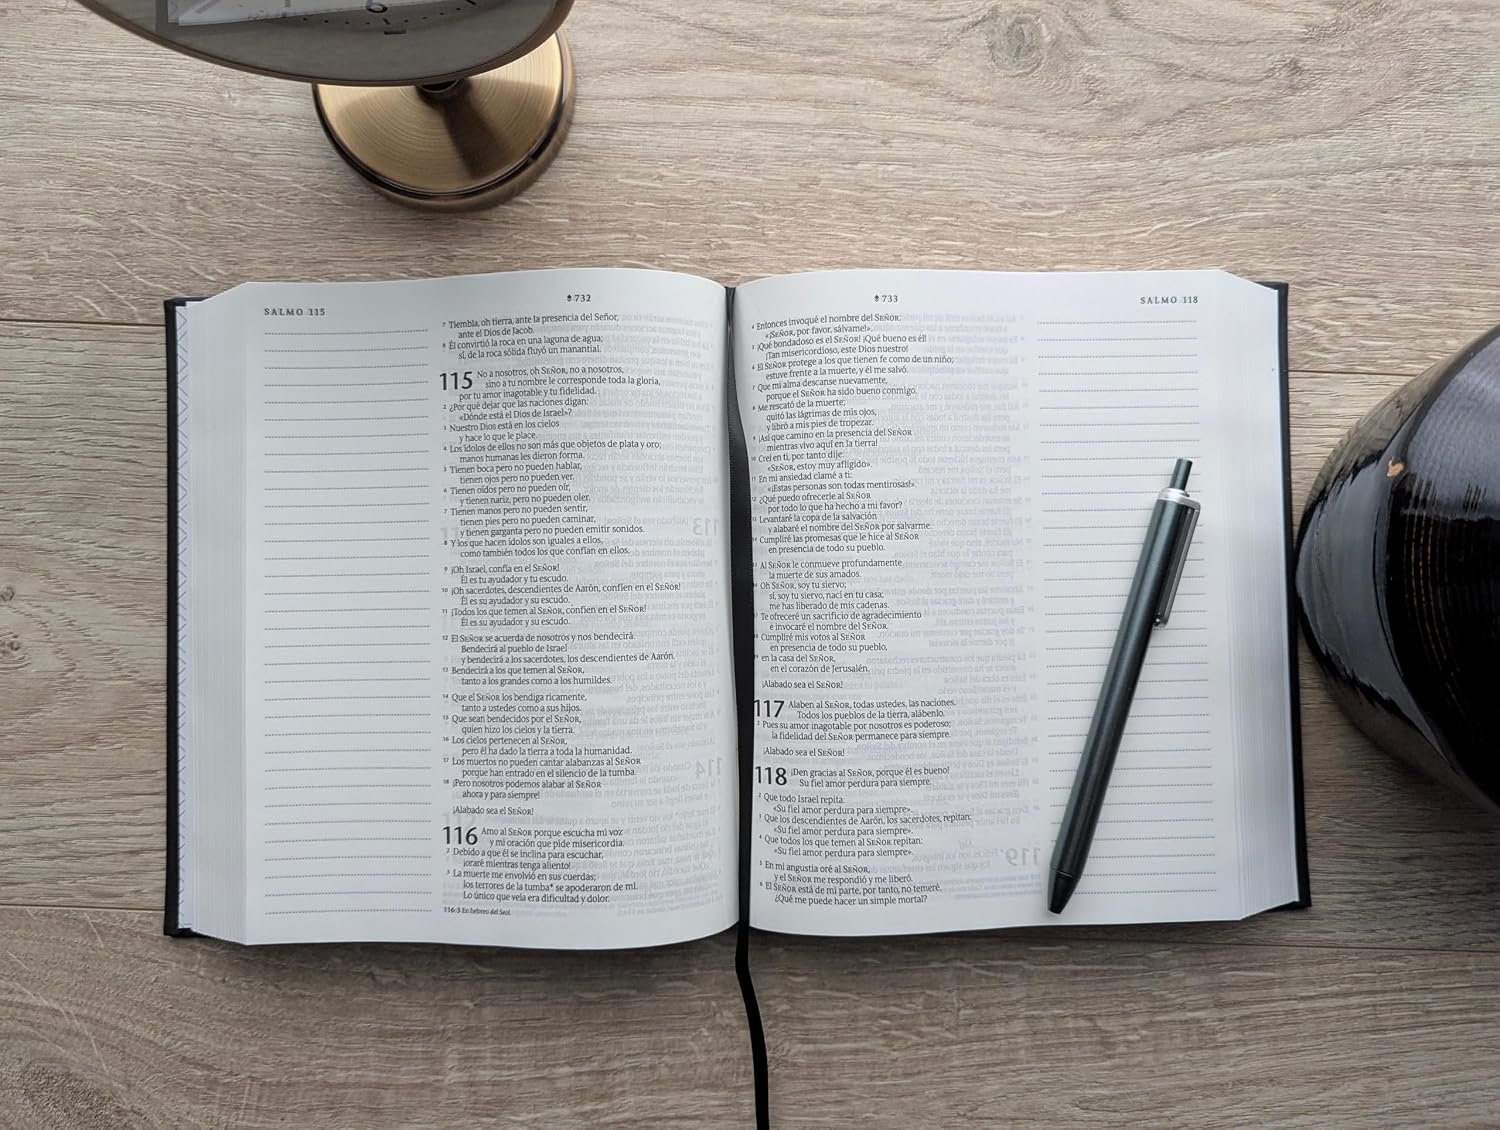 6
732
SALMO 115
7 Tiembla, oh tierra, ante la presencia del Señor,
ante el Dios de Jacob.
8 Él convirtió la roca en una laguna de agua;
sí, de la roca sólida fluyó un manantial.
115 No a nosotros, oh SEÑOR, no a nosotros,
sino a tu nombre le corresponde toda la gloria,
por tu amor inagotable y tu fidelidad.
2 ¿Por qué dejar que las naciones digan:
«Dónde está el Dios de Israel»?
3 Nuestro Dios está en los cielos
y hace lo que le place.
4 Los ídolos de ellos no son más que objetos de plata y oro;
manos humanas les dieron forma.
5 Tienen boca pero no pueden hablar,
tienen ojos pero no pueden ver.
6 Tienen oídos pero no pueden oír,
y tienen nariz, pero no pueden oler.
7 Tienen manos pero no pueden sentir,
tienen pies pero no pueden caminar,
y tienen garganta pero no pueden emitir sonidos.
8 Y los que hacen ídolos son iguales a ellos,
como también todos los que confían en ellos.
9 ¡Oh Israel, confía en el SEÑOR!
Él es tu ayudador y tu escudo.
10 ¡Oh sacerdotes, descendientes de Aarón, confíen en el SEÑOR!
Él es su ayudador y su escudo.
11 ¡Todos los que temen al SEÑOR, confíen en el SEÑOR!
Él es su ayudador y su escudo.
12 El SEÑOR se acuerda de nosotros y nos bendecirá.
Bendecirá al pueblo de Israel
y bendecirá a los sacerdotes, los descendientes de Aarón.
13 Bendecirá a los que temen al SEÑOR,
tanto a los grandes como a los humildes.
14 Que el SEÑOR los bendiga ricamente,
tanto a ustedes como a sus hijos.
15 Que sean bendecidos por el SEÑOR,
quien hizo los cielos y la tierra.
16 Los cielos pertenecen al SEÑOR,
pero él ha dado la tierra a toda la humanidad.
17 Los muertos no pueden cantar alabanzas al SEÑOR
porque han entrado en el silencio de la tumba.
18 ¡Pero nosotros podemos alabar al SEÑOR
ahora y para siempre!
¡Alabado sea el SEÑOR!
116 Amo al SEÑOR porque escucha mi voz
y mi oración que pide misericordia.
2 Debido a que él se inclina para escuchar,
¡oraré mientras tenga aliento!
3 La muerte me envolvió en sus cuerdas;
los terrores de la tumba* se apoderaron de mí.
Lo único que veía era dificultad y dolor.
116:3 En hebreo del Seol.
733
SALMO 118
4 Entonces invoqué el nombre del SEÑOR:
«¡SEÑOR, por favor, sálvame!».
5 ¡Qué bondadoso es el SEÑOR! ¡Qué bueno es él!
¡Tan misericordioso, este Dios nuestro!
6 El SEÑOR protege a los que tienen fe como de un niño;
estuve frente a la muerte, y él me salvó.
7 Que mi alma descanse nuevamente,
porque el SEÑOR ha sido bueno conmigo.
8 Me rescató de la muerte;
quitó las lágrimas de mis ojos,
y libró a mis pies de tropezar.
9 ¡Así que camino en la presencia del SEÑOR
mientras vivo aquí en la tierra!
10 Creí en ti, por tanto dije:
«SEÑOR, estoy muy afligido».
11 En mi ansiedad clamé a ti:
«¡Estas personas son todas mentirosas!».
12 ¿Qué puedo ofrecerle al SEÑOR
por todo lo que ha hecho a mi favor?
Levantaré la copa de la salvación
y alabaré el nombre del SEÑOR por salvarme.
Cumpliré las promesas que le hice al SEÑOR
en presencia de todo su pueblo.
Al SEÑOR le conmueve profundamente
la muerte de sus amados.
Oh SEÑOR, soy tu siervo;
sí, soy tu siervo, nací en tu casa;
me has liberado de mis cadenas.
Te ofreceré un sacrificio de agradecimiento
e invocaré el nombre del SEÑOR.
Cumpliré mis votos al SEÑOR
en presencia de todo su pueblo,
en la casa del SEÑOR,
en el corazón de Jerusalén.
¡Alabado sea el SEÑOR!
117 Alaben al SEÑOR, todas ustedes, las naciones.
Todos los pueblos de la tierra, alábenlo.
2 Pues su amor inagotable por nosotros es poderoso;
la fidelidad del SEÑOR permanece para siempre.
¡Alabado sea el SEÑOR!
118 ¡Den gracias al SEÑOR, porque él es bueno!
Su fiel amor perdura para siempre.
2 Que todo Israel repita:
«Su fiel amor perdura para siempre».
3 Que los descendientes de Aarón, los sacerdotes, repitan:
«Su fiel amor perdura para siempre».
4 Que todos los que temen al SEÑOR repitan:
«Su fiel amor perdura para siempre».
5 En mi angustia oré al SEÑOR,
y el SEÑOR me respondió y me liberó.
6 El SEÑOR está de mi parte, por tanto, no temeré.
¿Qué me puede hacer un simple mortal?